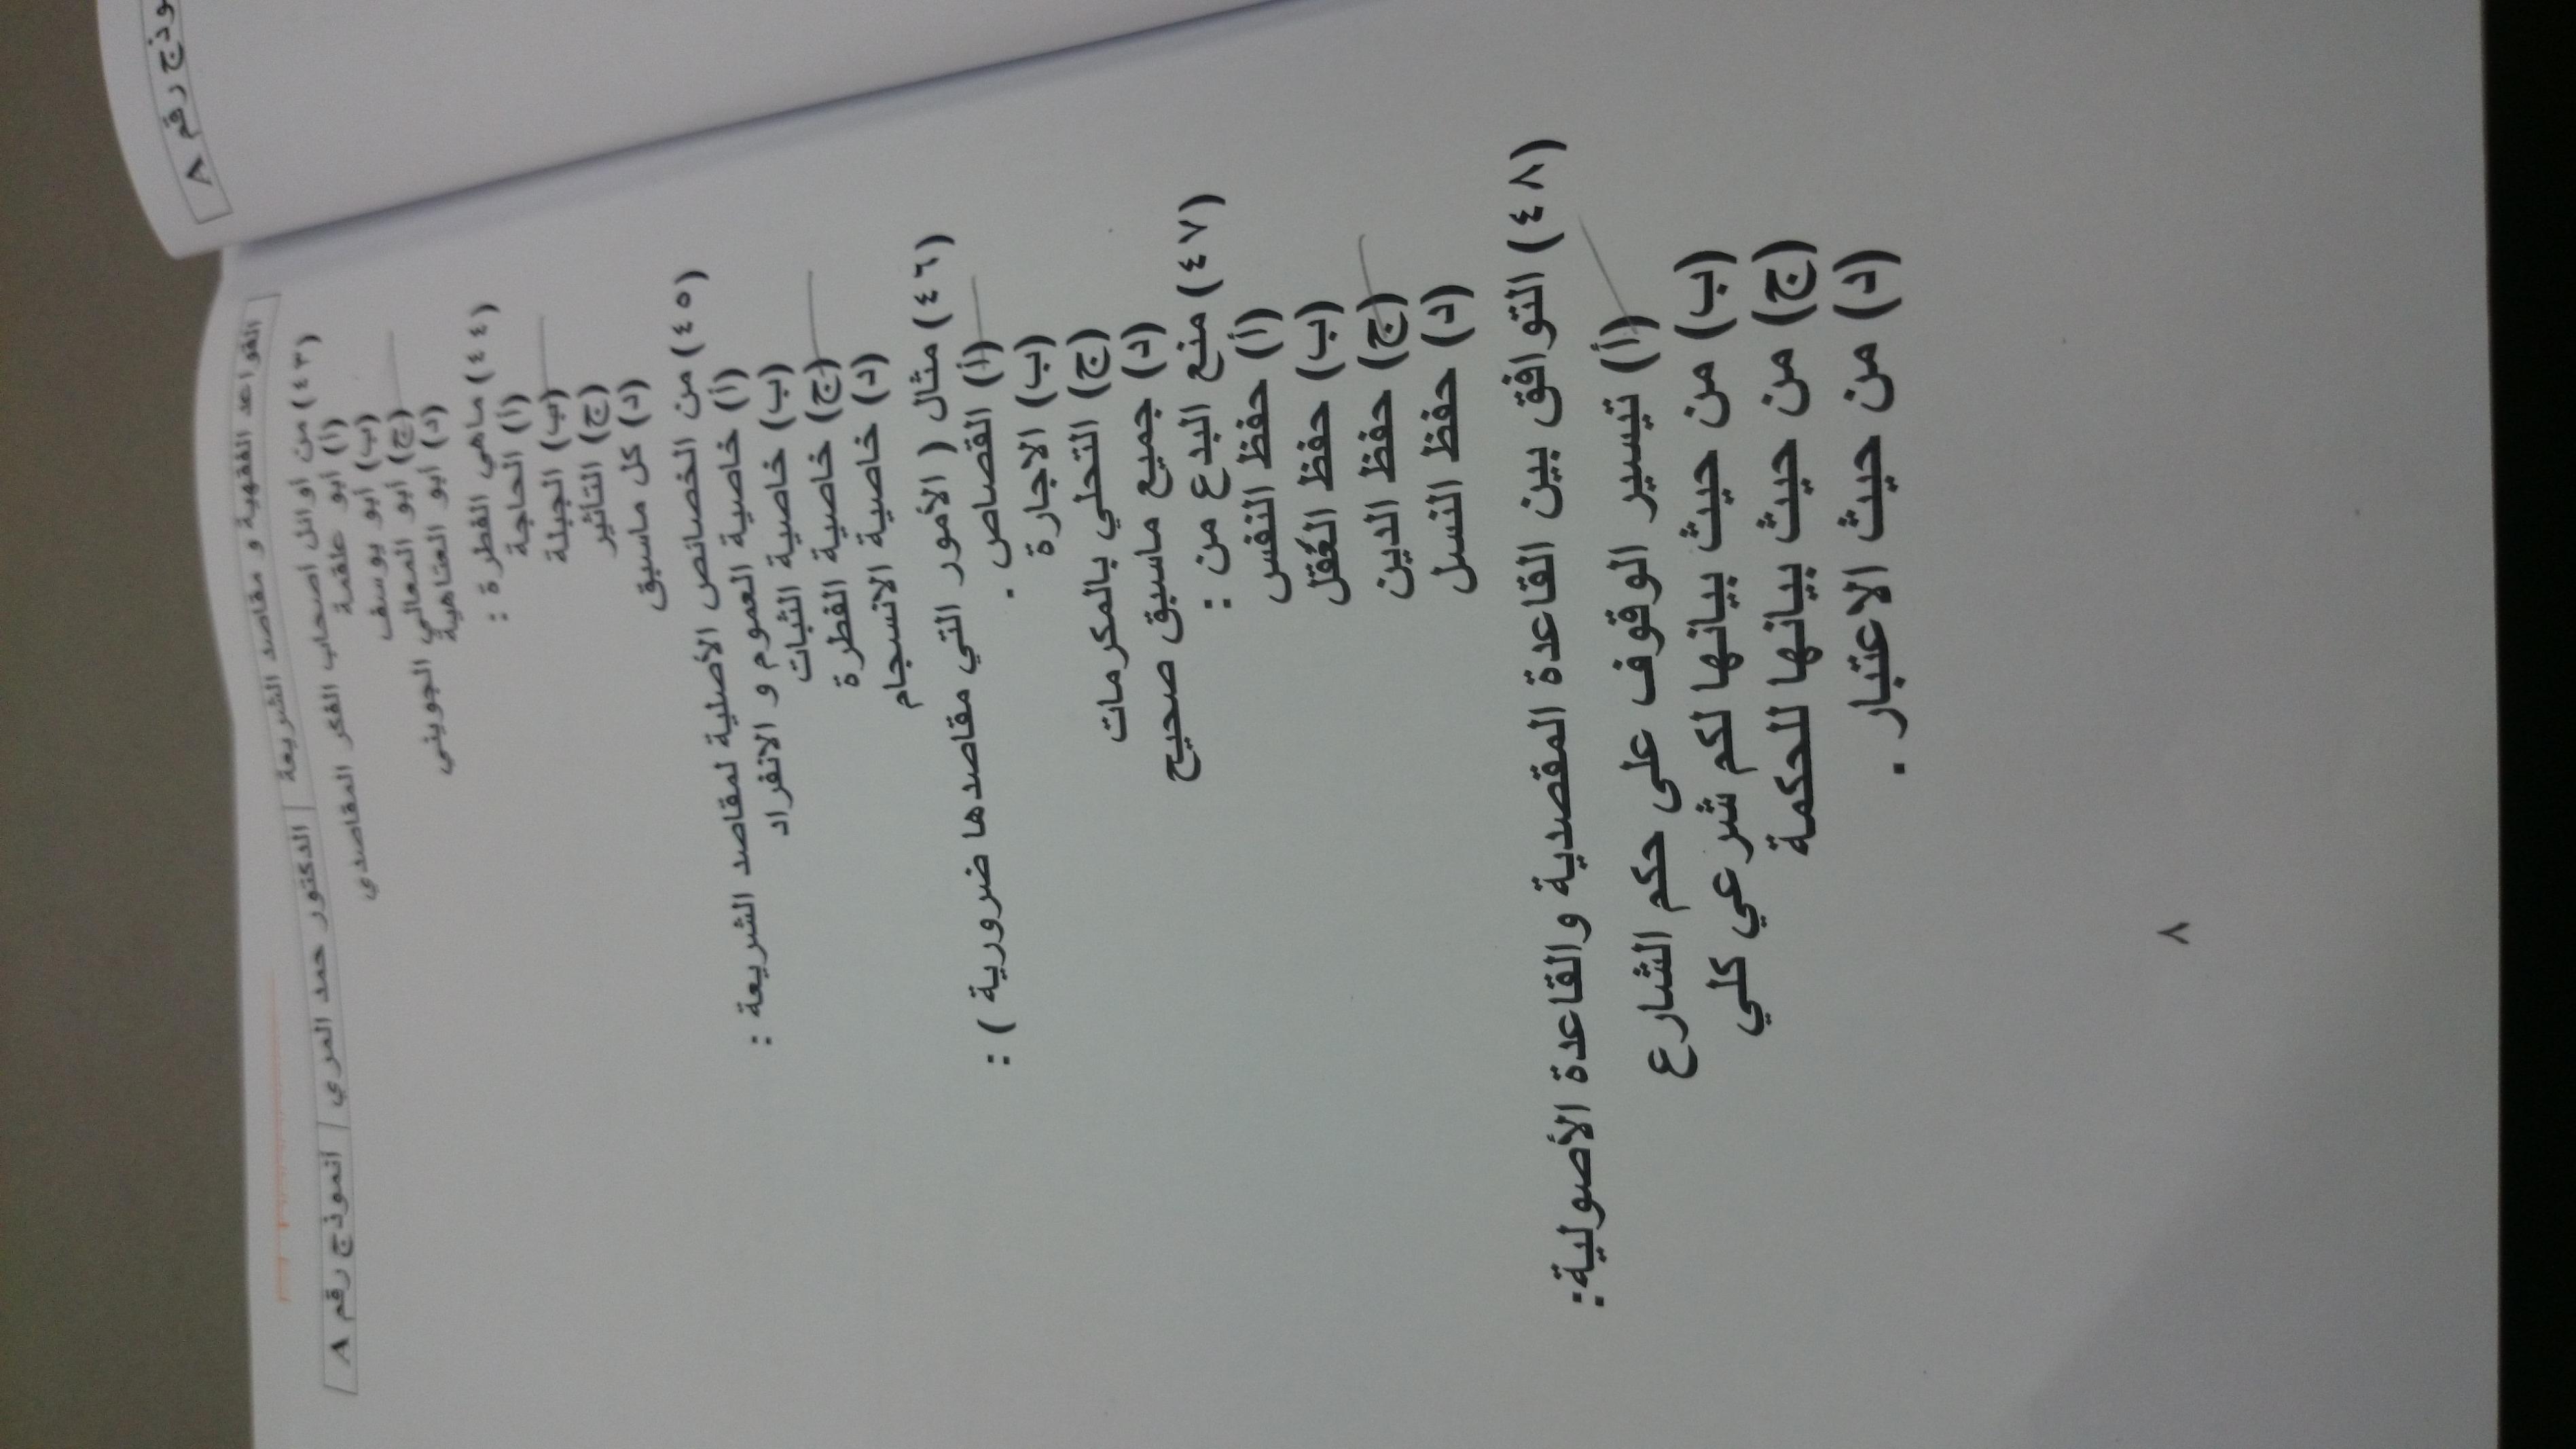 القواعد الفقهية و مقاصد الشريعة | الدكتور حمد المري | انموذج رقم A
(٤٣) من اوائل اصحاب الفكر المقاصدي
(أ) أبو علقمة
(ب) أبو يوسف
(ج) أبو المعالي الجويني
(د) أبو العتاهية
(٤٤) ماهي الفطرة :
(أ) الحاجة
(ب) الجبلة
(ج) التأثير
(د) كل ماسبق
(٤٥) من الخصائص الأصلية لمقاصد الشريعة :
(أ) خاصية العموم و الانفراد
(ب) خاصية الثبات
(ج) خاصية الفطرة
(د) خاصية الانسجام
(٤٦) مثال ( الأمور التي مقاصدها ضرورية ) :
(أ) القصاص .
(ب) الاجارة
(ج) التحلي بالمكرمات
(د) جميع ماسبق صحيح
(٤٧) منع البدع من :
(أ) حفظ النفس
(ب) حفظ العقل
(ج) حفظ الدين
(د) حفظ النسل
(٤٨) التوافق بين القاعدة المقصدية والقاعدة الأصولية:
(أ) تيسير الوقوف على حكم الشارع
(ب) من حيث بيانها لكم شرعي كلي
(ج) من حيث بيانها للحكمة
(د) من حيث الاعتبار .
٨
وذج رقم A